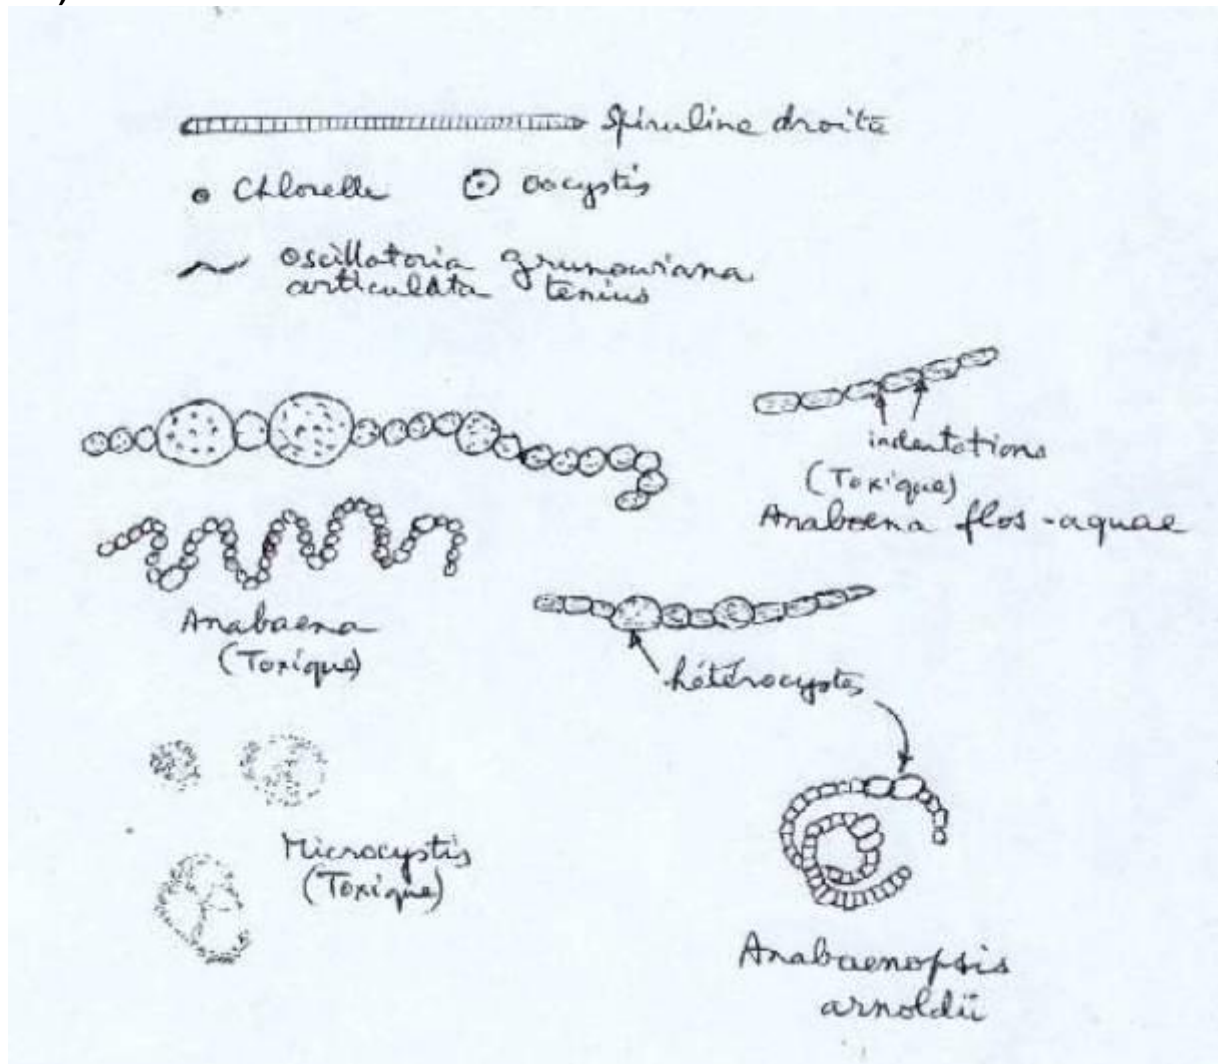 Spiruline droite
Chlorelle
oocystis
oscillatoria grunowiana
articulata tenius
indentations
(Toxique)
Anaboena flos-aquae
Anabaena
(Toxique)
hétérocystes
Microcystis
(Toxique)
Anabaenopsis
arnoldii